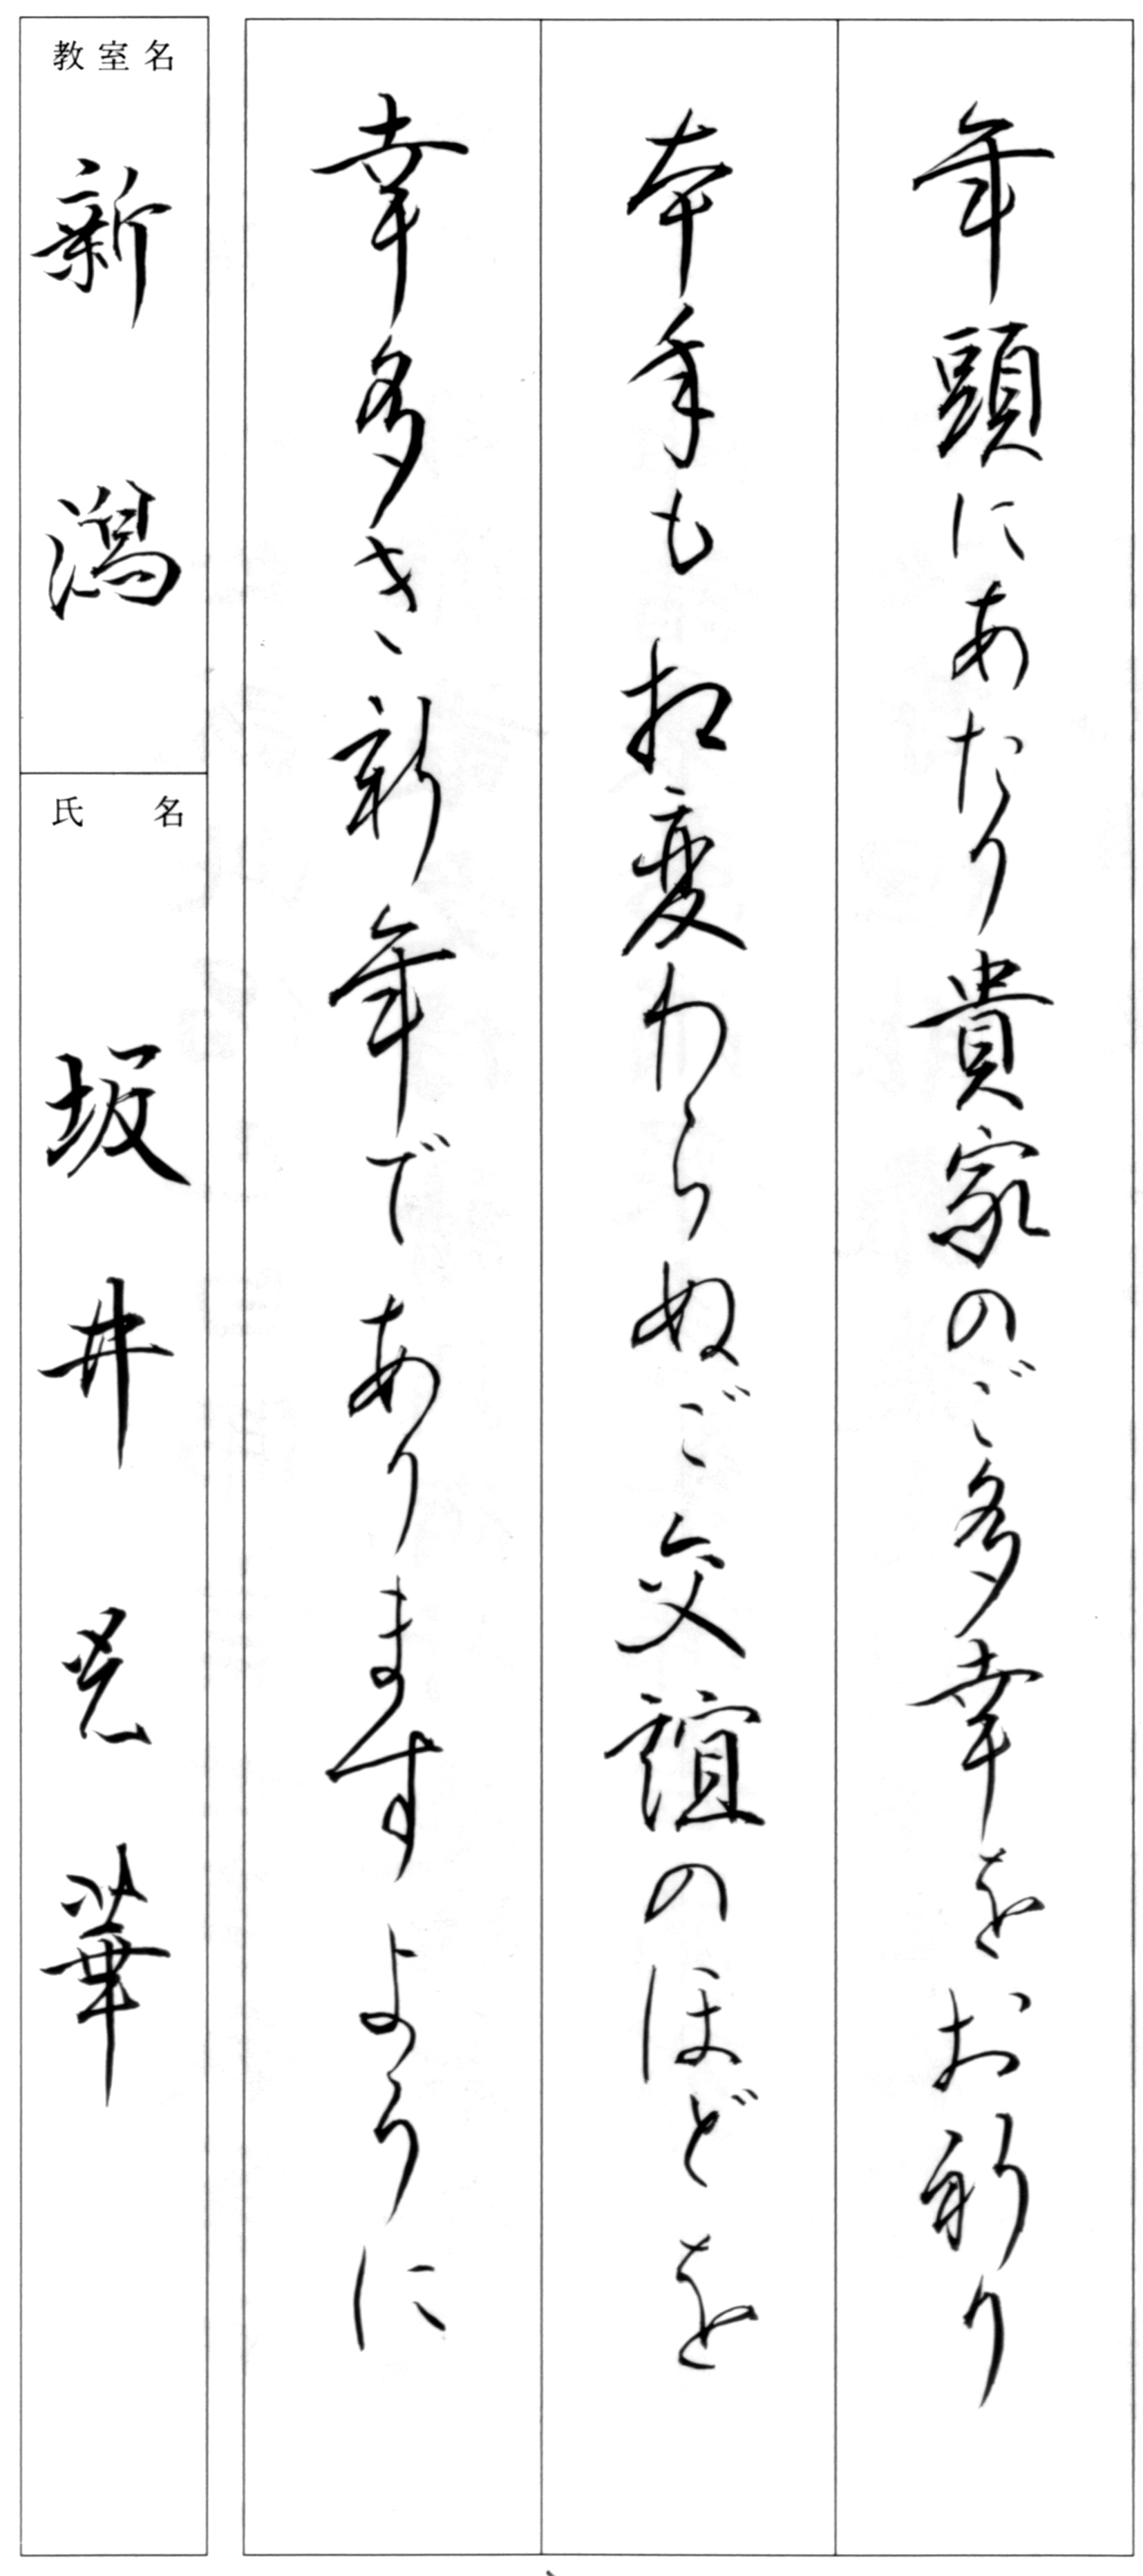 年頭にあたり貴家のご多幸をお祈り
本年も相変わらぬご交誼のほどを
幸多き新年でありますように
教室名
新潟
氏名
坂井晃華